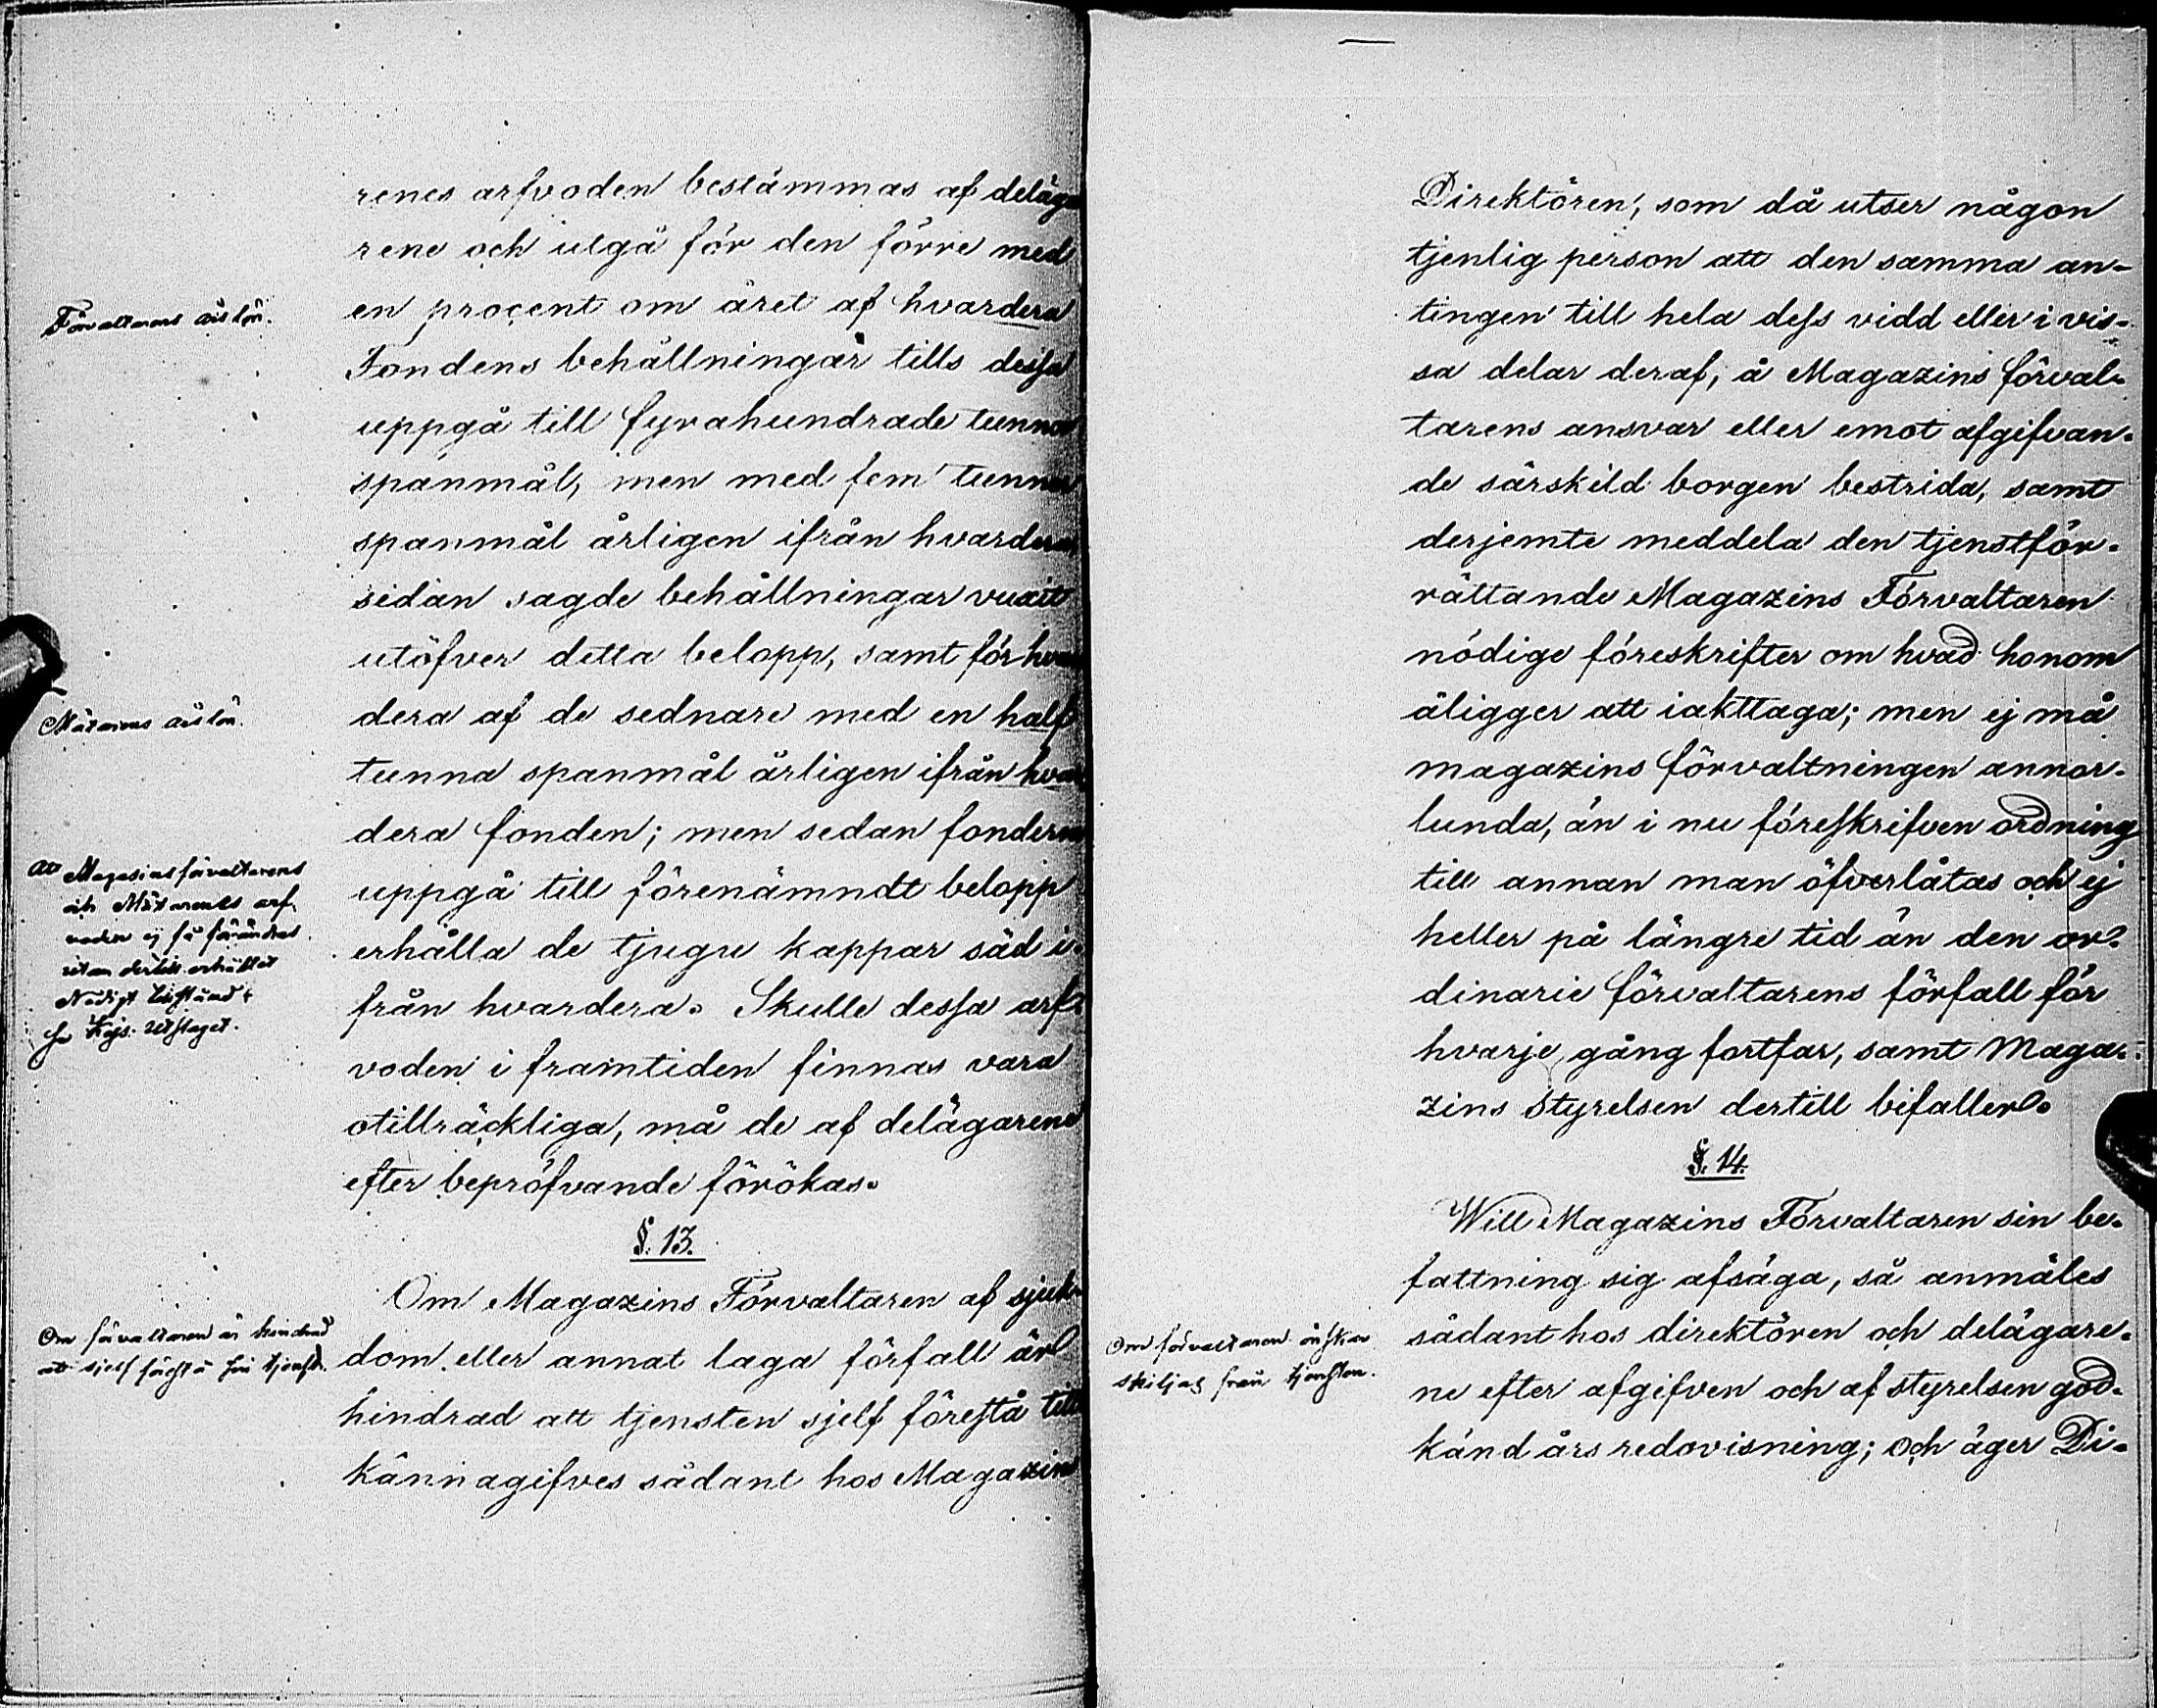 renes arfvoden bestämmas af deläga
rene och utgå för den förre med
Förvaltarens årslön.
en procent om året af hvardera
Fondens behållningar tills dessa
uppgå till fyrahundrade tunnor
spanmål, men med fem tunnor
spanmål årligen ifrån hvardera,
sedan sagde behållningar vuxit
utöfver detta belopp, samt för hvar
Mätarens årslön.
dera af de sednare med en half
tunna spanmål årligen ifrån hvar
dera fonden; men sedan fonderna
Att Magasinsförvaltarens
och Mätarenes arf
voden ej få förändras
utan dertill erhållet
Nådigt tillstånd
Kejs. utslaget.
uppgå till förenämndt belopp
erhålla de tjugu kappar säd i-
från hvardera. Skulle dessa arf-
voden i framtiden finnas vara
otillräckliga, må de af delägarene
efter bepröfvande förökas.
§. 13.
Om Magazins Förvaltaren af sjuk-
Om förvaltaren är hindrad
att sjelf förestå sin tjenst.
dom eller annat laga förfall är
hindrad att tjensten sjelf förestå till
kännagifves sådant hos Magazin
Direktören, som då utser någon
tjenlig person att den samma an-
tingen till hela dess vidd eller i vis-
sa delar deraf, å Magazins förval-
tarens ansvar eller emot afgifvan-
de särskild borgen bestrida, samt
derjemte meddela den tjenstför-
rättande Magazins Förvaltaren
nödige föreskrifter om hvad honom
åligger att iakttaga; men ej må
magazins förvaltningen annor-
lunda, än i nu föreskrifven ordning
till annan man öfverlåtas och ej
heller på längre tid än den or-
dinarie förvaltarens förfall för
hvarje gång fortfar, samt Maga-
zins Styrelsen dertill bifaller.
§. 14.
Will Magazins Förvaltaren sin be-
fattning sig afsäga, så anmäles
Om förvaltaren önskar
skiljas från tjensten.
sådant hos direktören och delägare-
ne efter afgifven och af styrelsen god-
känd års redovisning; och äger Di-